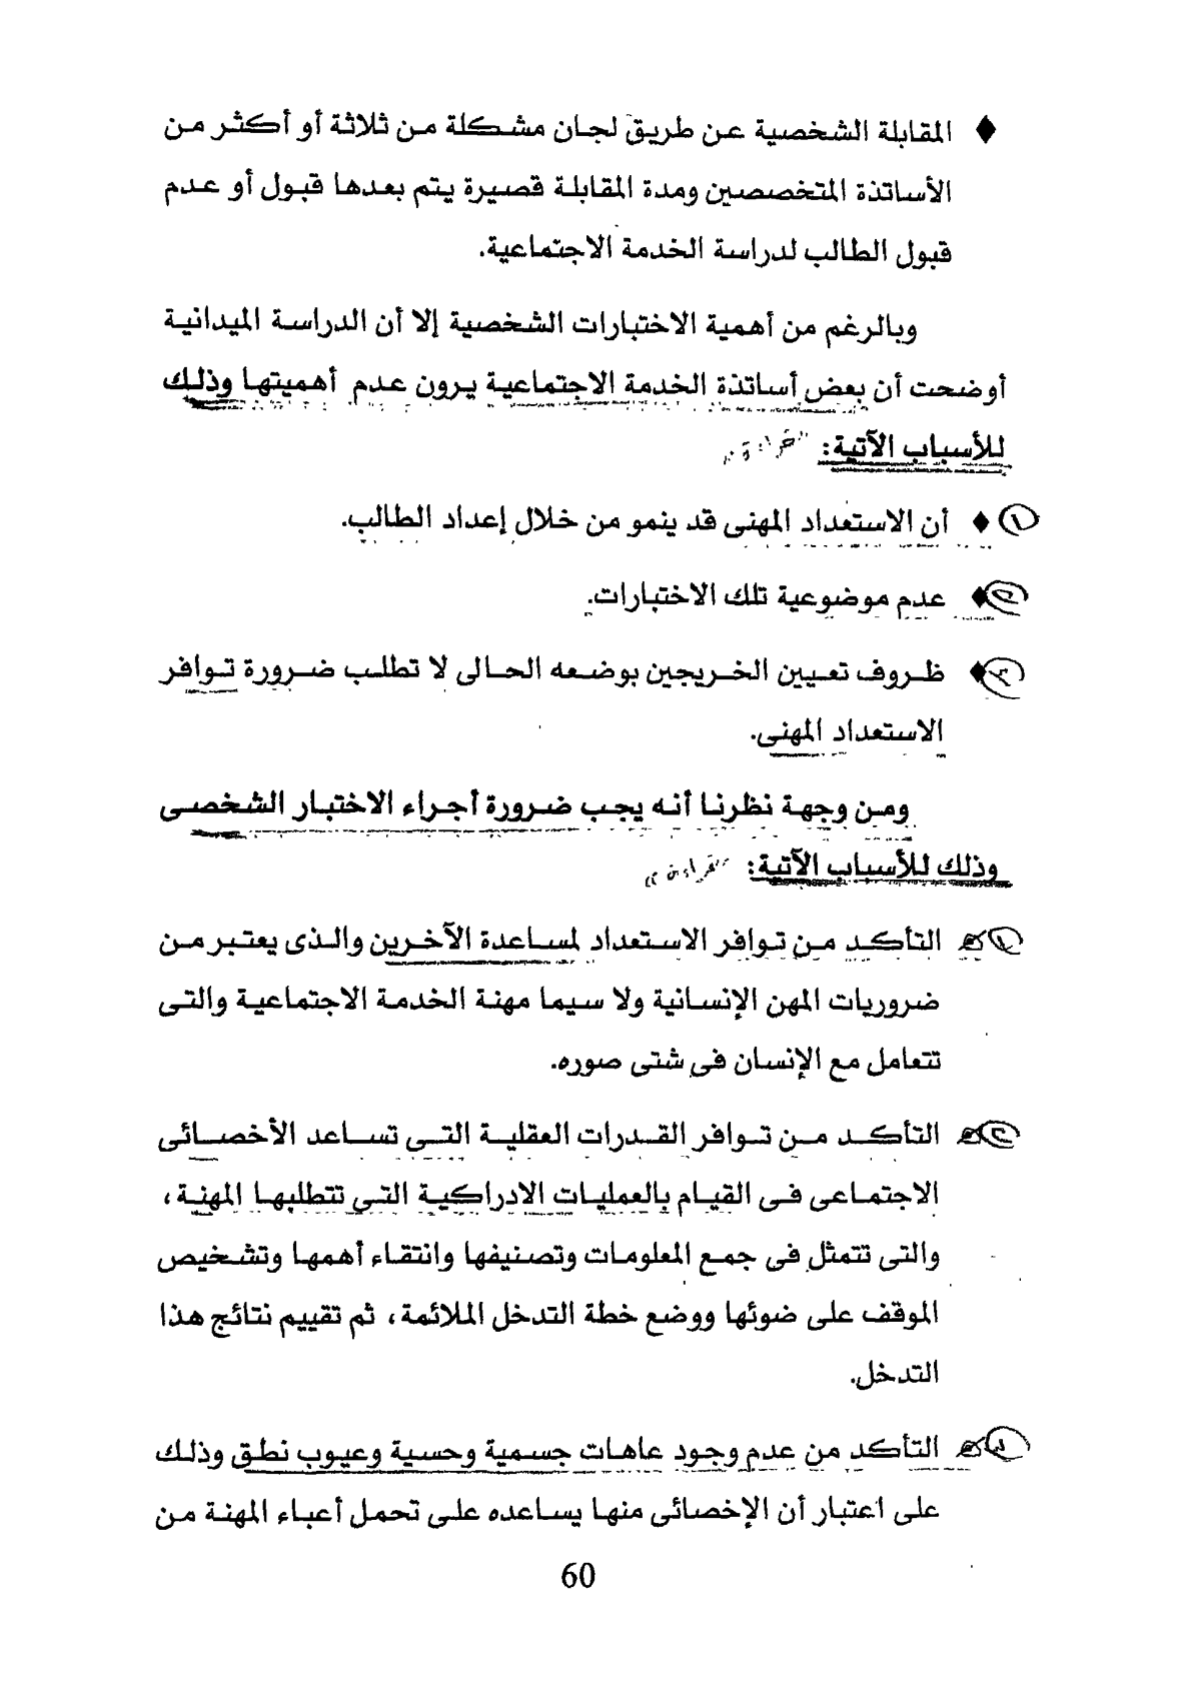 ♦ المقابلة الشخصية عن طريق لجان مشكلة من ثلاثة أو أكثر من
الأساتذة المتخصصين ومدة المقابلة قصيرة يتم بعدها قبول أو عدم
قبول الطالب لدراسة الخدمة الاجتماعية.
وبالرغم من أهمية الاختبارات الشخصية إلا أن الدراسة الميدانية
أوضحت أن بعض أساتذة الخدمة الاجتماعية يرون عدم أهميتها وذلك
للأسباب الآتية:
١ ♦ أن الاستعداد المهنى قد ينمو من خلال إعداد الطالب.
٢ ♦ عدم موضوعية تلك الاختبارات.
٣ ♦ ظروف تعيين الخريجين بوضعه الحالى لا تطلب ضرورة توافر
الاستعداد المهنى.
ومن وجهة نظرنا أنه يجب ضرورة أجراء الاختبار الشخصى
وذلك للأسباب الآتية:
١ التأكد من توافر الاستعداد لمساعدة الآخرين والذى يعتبر من
ضروريات المهن الإنسانية ولا سيما مهنة الخدمة الاجتماعية والتى
تتعامل مع الإنسان فى شتى صوره.
٢ التأكد من توافر القدرات العقلية التى تساعد الأخصائى
الاجتماعى فى القيام بالعمليات الادراكية التى تتطلبها المهنة،
والتى تتمثل فى جمع المعلومات وتصنيفها وانتقاء أهمها وتشخيص
الموقف على ضوئها ووضع خطة التدخل الملائمة، ثم تقييم نتائج هذا
التدخل.
٣ التأكد من عدم وجود عاهات جسمية وحسية وعيوب نطق وذلك
على اعتبار أن الإخصائى منها يساعده على تحمل أعباء المهنة من
60